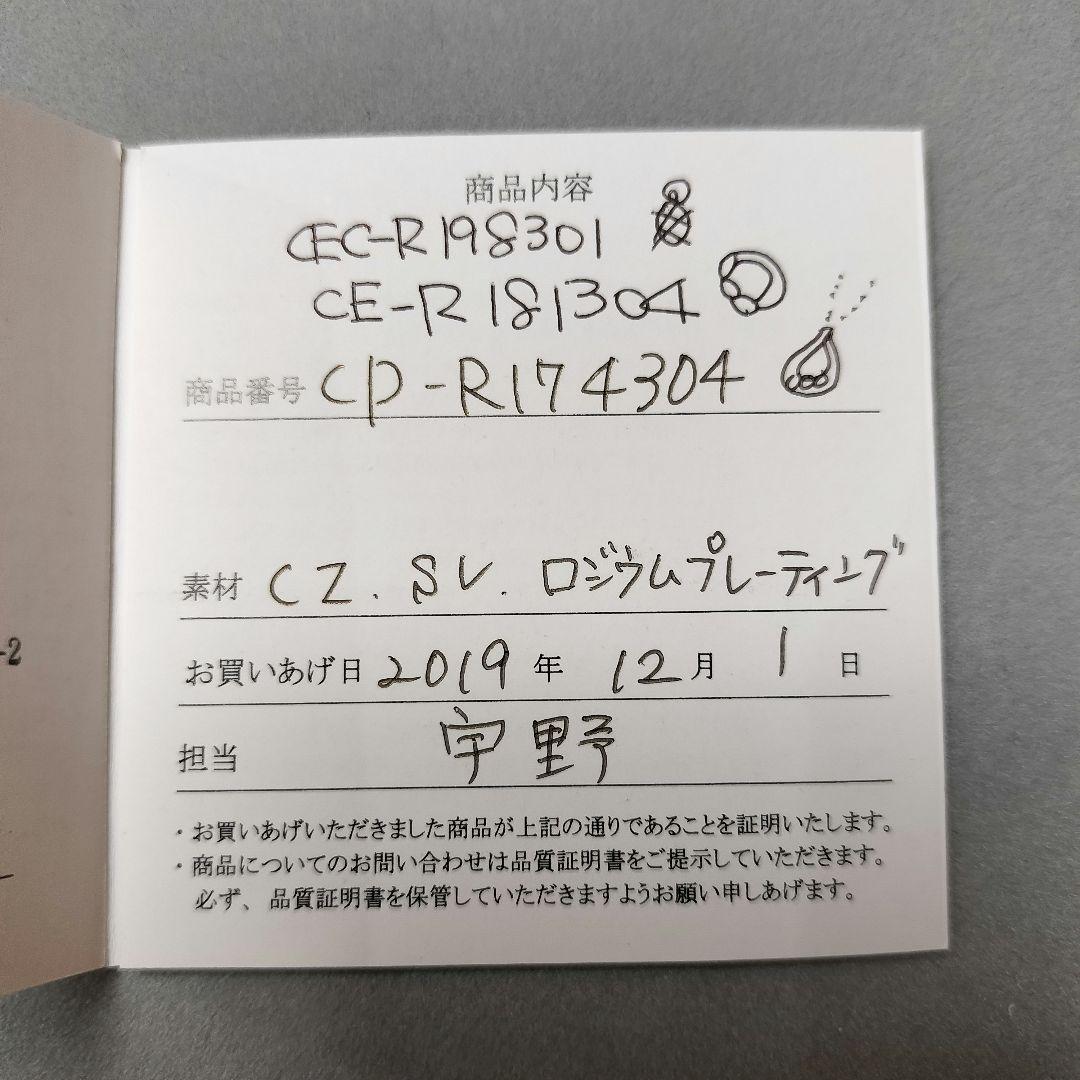 商品内容
CEC-R198301
CE-R181304
商品番号 CP-R174304
素材 CZ. SV. ロジウムプレーティング
お買いあげ日 2019 年 12 月 1 日
担当 宇野
・お買いあげいただきました商品が上記の通りであることを証明いたします。
・商品についてのお問い合わせは品質証明書をご提示していただきます。
必ず、品質証明書を保管していただきますようお願い申しあげます。
-2